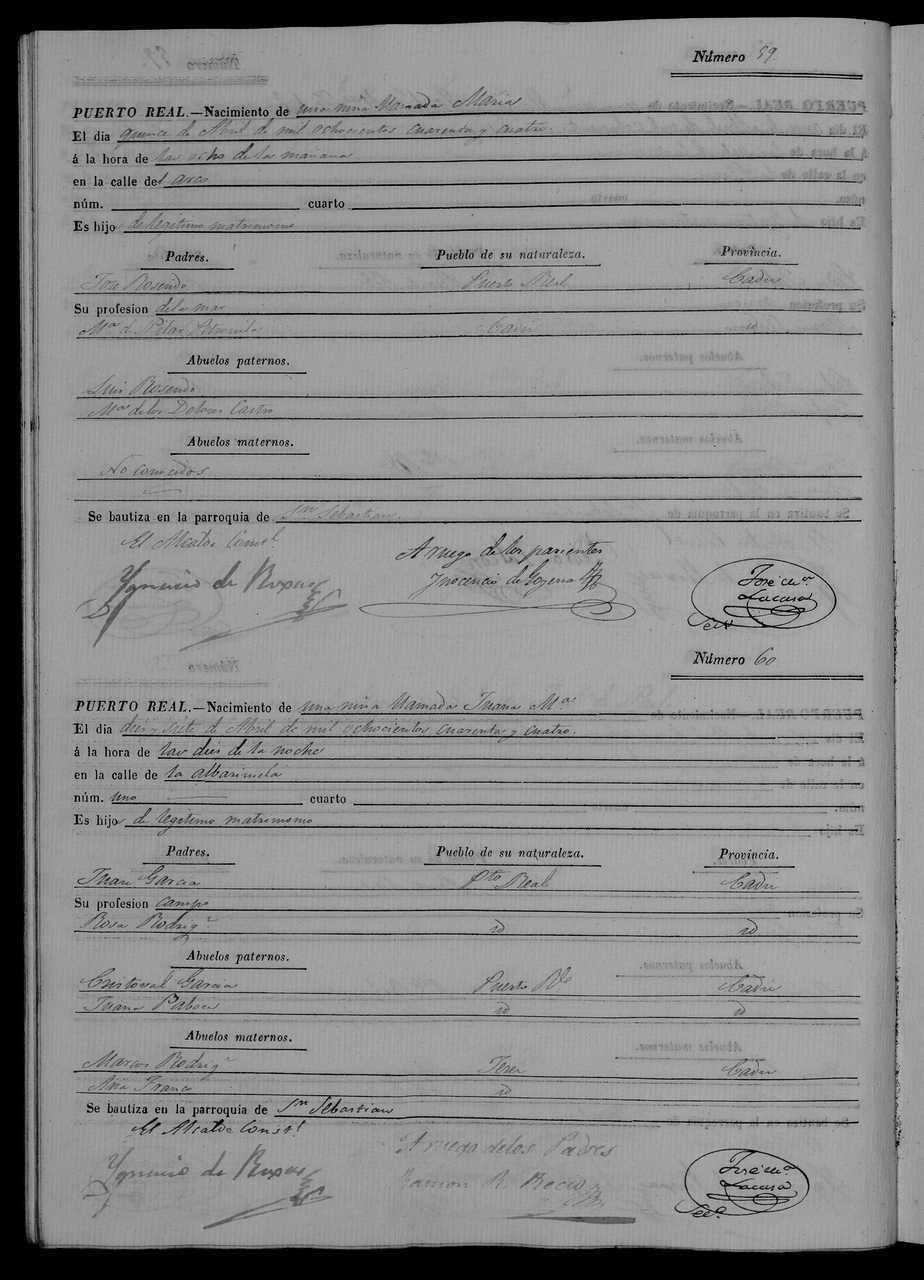 Número 59
PUERTO REAL.—Nacimiento de una niña llamada Maria
El dia quince de Abril de mil ochocientos cuarenta y cuatro
á la hora de las ocho de la mañana
en la calle del arco
núm. cuarto
Es hijo de legitimo matrimonio
Padres. Pueblo de su naturaleza. Provincia.
José Rosendo Puerto Real Cadiz
Su profesion de la mar
Mª d. Pilar Cadiz id
Abuelos paternos.
Luis Rosendo
Mª de los Dolores Castro
Abuelos maternos.
No conocidos
Se bautiza en la parroquia de Sn Sebastian.
El Alcalde Constl.
A ruego de los parientes
Ygnacio de
Inocencio de Goyena
José Mª.
Lacasa
Número 60
PUERTO REAL.—Nacimiento de una niña llamada Juana Mª
El dia diez y siete de Abril de mil ochocientos cuarenta y cuatro.
á la hora de las diez de la noche
en la calle de la albarizuela
núm. uno cuarto
Es hijo de legitimo matrimonio
Padres. Pueblo de su naturaleza. Provincia.
Juan Garcia Pto Real Cadiz
Su profesion campo
Rosa Rodrigz id id
Abuelos paternos.
Cristoval Garcia Puerto Rl Cadiz
Juana Pabon id id
Abuelos maternos.
Marcos Rodrigz Jerez Cadiz
Ana Franco id
Se bautiza en la parroquia de Sn Sebastian
El Alcalde Constl
A ruego de los Padres
Ygnacio de
Ramon R. Recio
José Mª.
Lacasa